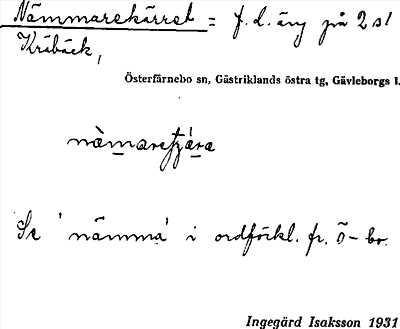 Nämmarekärret = f.d. äng på 2 st
Kråbäck,
Österfärnebo sn, Gästriklands östra tg, Gävleborgs l.
Se 'nämma' i ordförkl. fr. Ö-bo.
Ingegärd Isaksson 1931